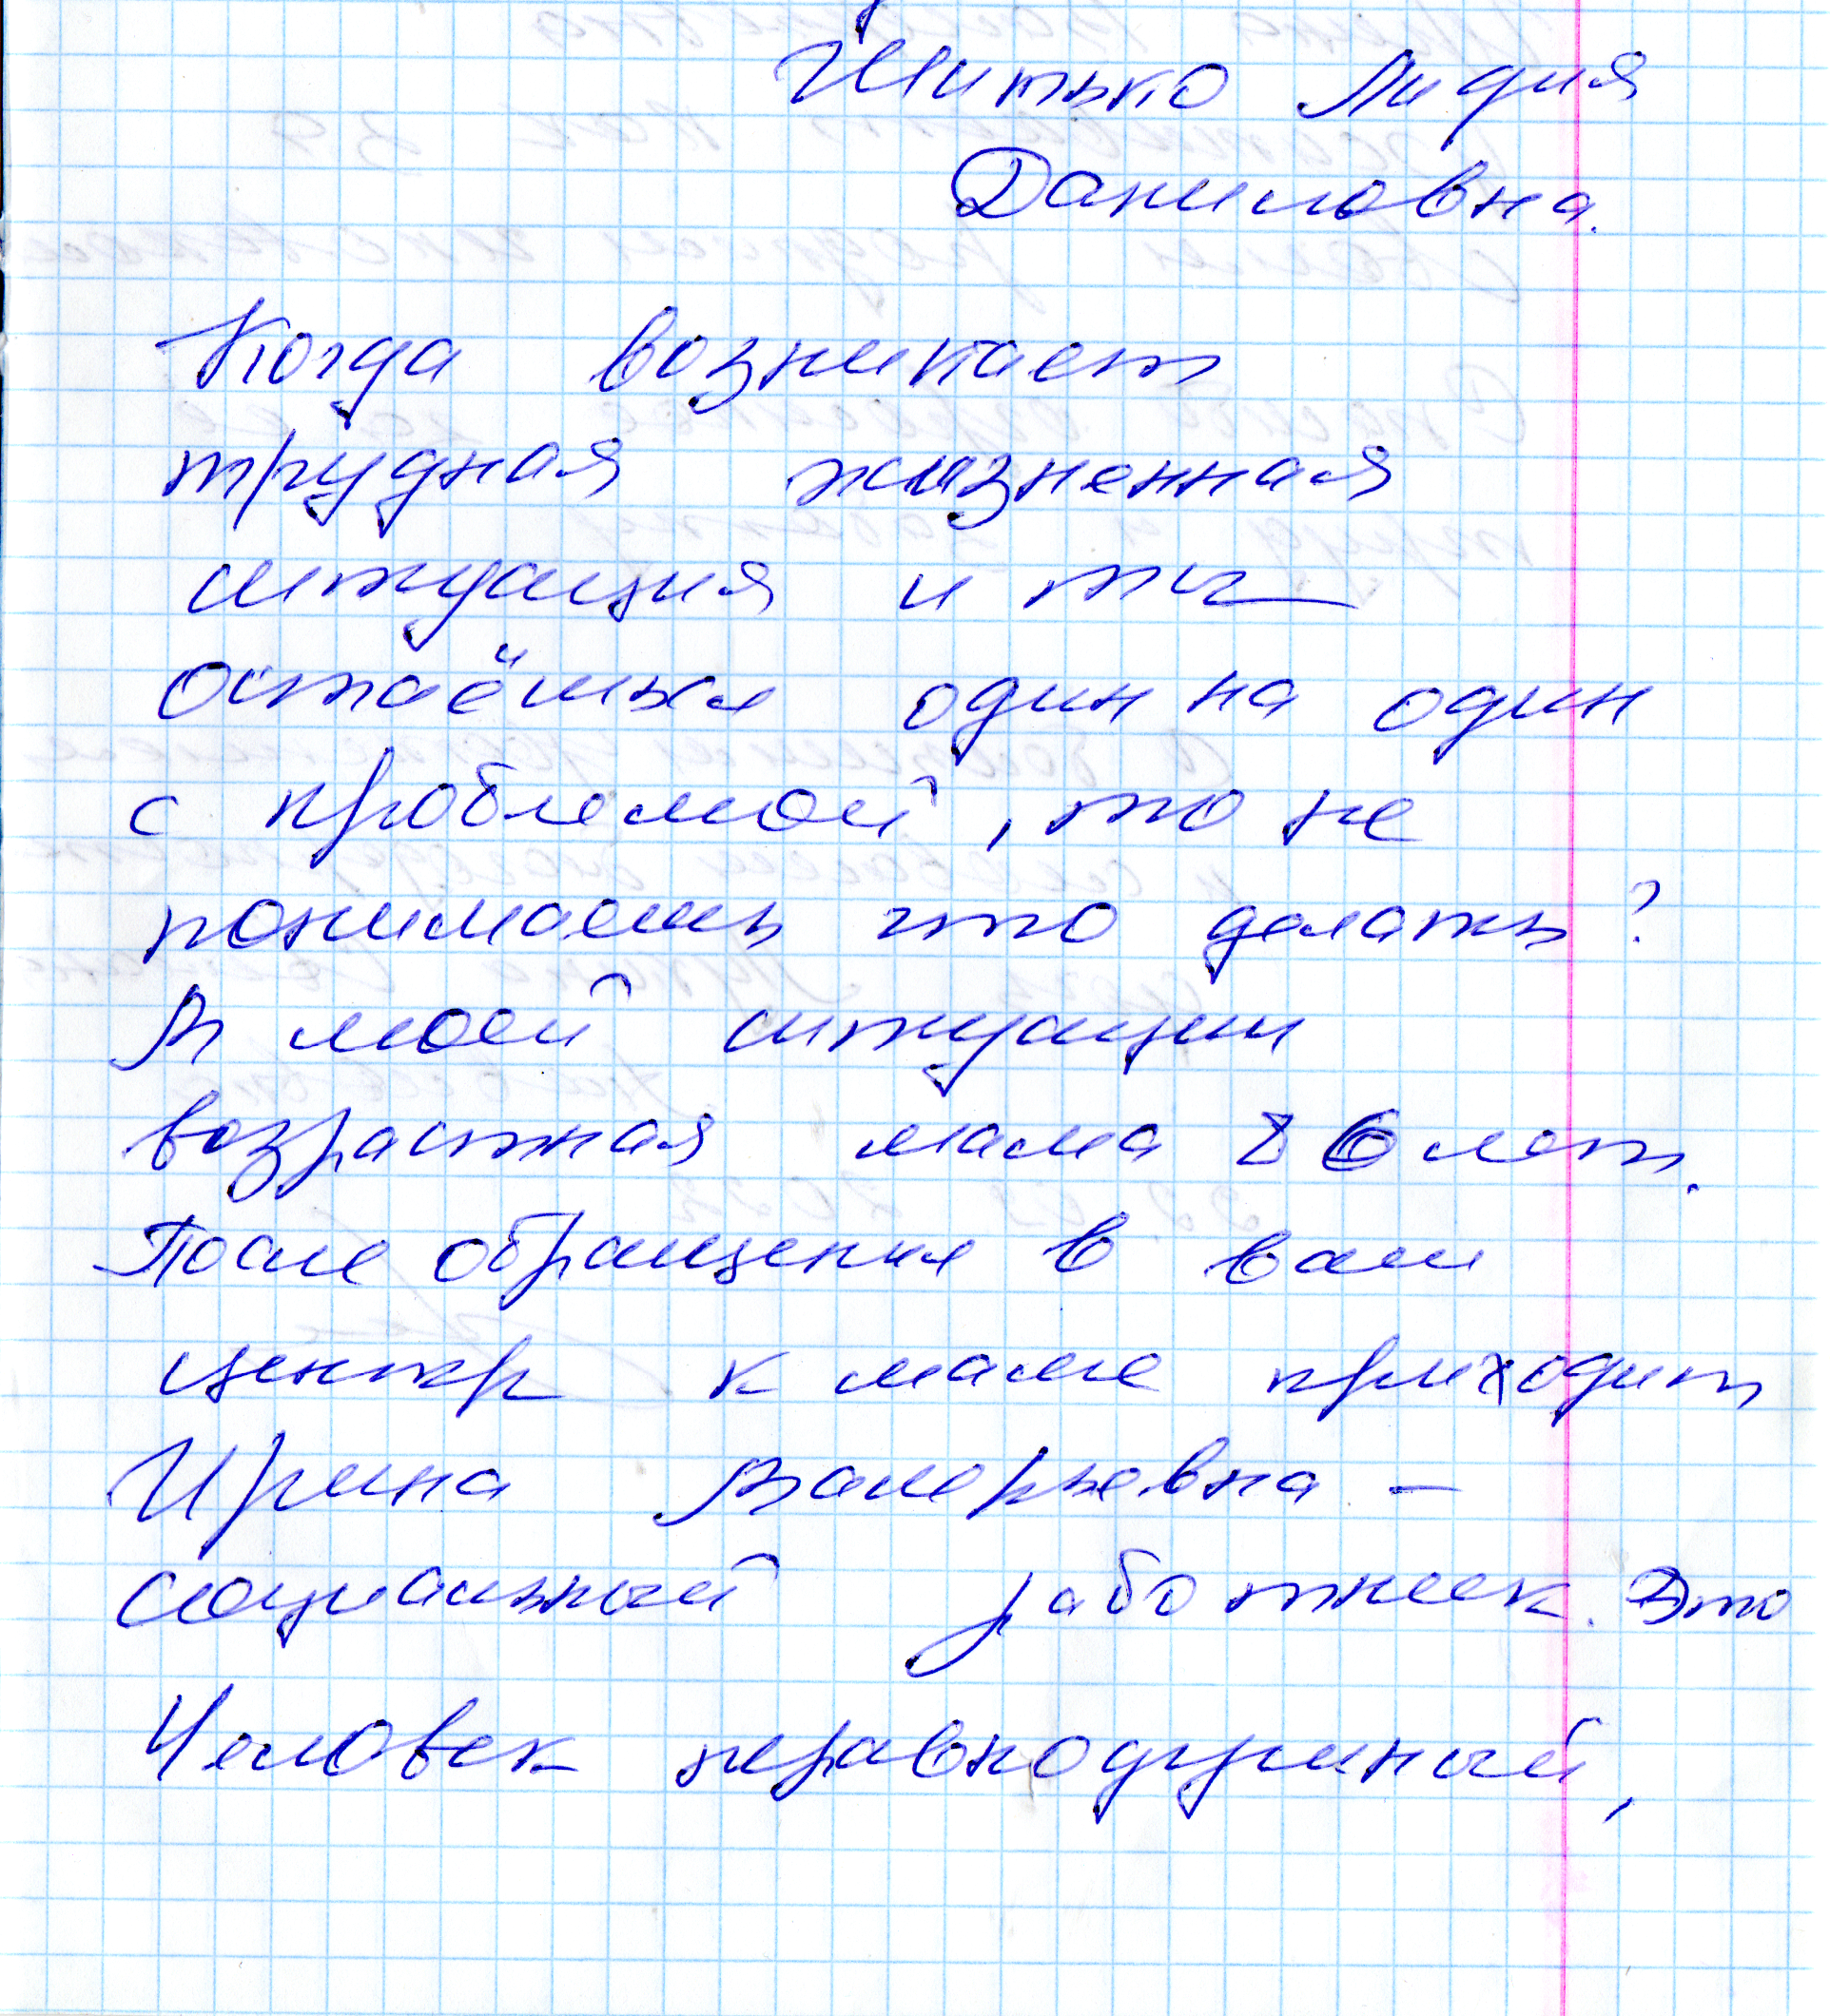 Шитько Лидия
Даниловна.
Когда возникает
трудная жизненная
ситуация и ты
остаёшься один на один
с проблемой, то не
понимаешь что делать?
В моей ситуации
возрастная мама 86 лет.
После обращения в ваш
центр к маме приходит
Ирина Валерьевна –
социальный работник. Это
Человек неравнодушный,